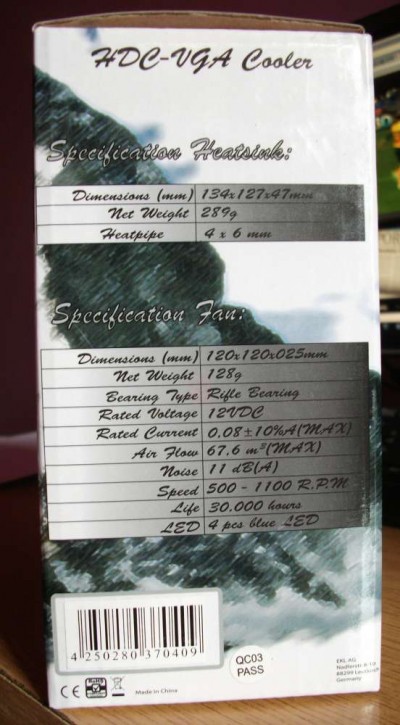 HDC-VGA Cooler
Specification Heatsink:
Dimensions (mm) 134x127x47mm
Net Weight 289g
Heatpipe 4 x 6 mm
Specification Fan:
Dimensions (mm) 120x120x025mm
Net Weight 128g
Bearing Type Rifle Bearing
Rated Voltage 12VDC
Rated Current 0,08±10%A(MAX)
Air Flow 67,6 m³(MAX)
Noise 11 dB(A)
Speed 500 - 1100 R.P.M
Life 30.000 hours
LED 4 pcs blue LED
4 250280 370409
QC03
PASS
CE Made in China
EKL AG
88299
Germany